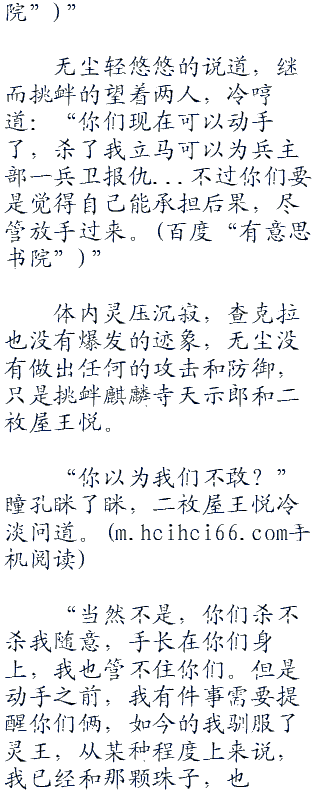 院”)”
无尘轻悠悠的说道，继
而挑衅的望着两人，冷哼
道：“你们现在可以动手
了，杀了我立马可以为兵主
部一兵卫报仇...不过你们要
是觉得自己能承担后果，尽
管放手过来。(百度“有意思
书院”)”
体内灵压沉寂，查克拉
也没有爆发的迹象，无尘没
有做出任何的攻击和防御，
只是挑衅麒麟寺天示郎和二
枚屋王悦。
“你以为我们不敢？”
瞳孔眯了眯，二枚屋王悦冷
淡问道。(m.hcihci66.com手
机阅读)
“当然不是，你们杀不
杀我随意，手长在你们身
上，我也管不住你们。但是
动手之前，我有件事需要提
醒你们俩，如今的我驯服了
灵王，从某种程度上来说，
我已经和那颗珠子，也